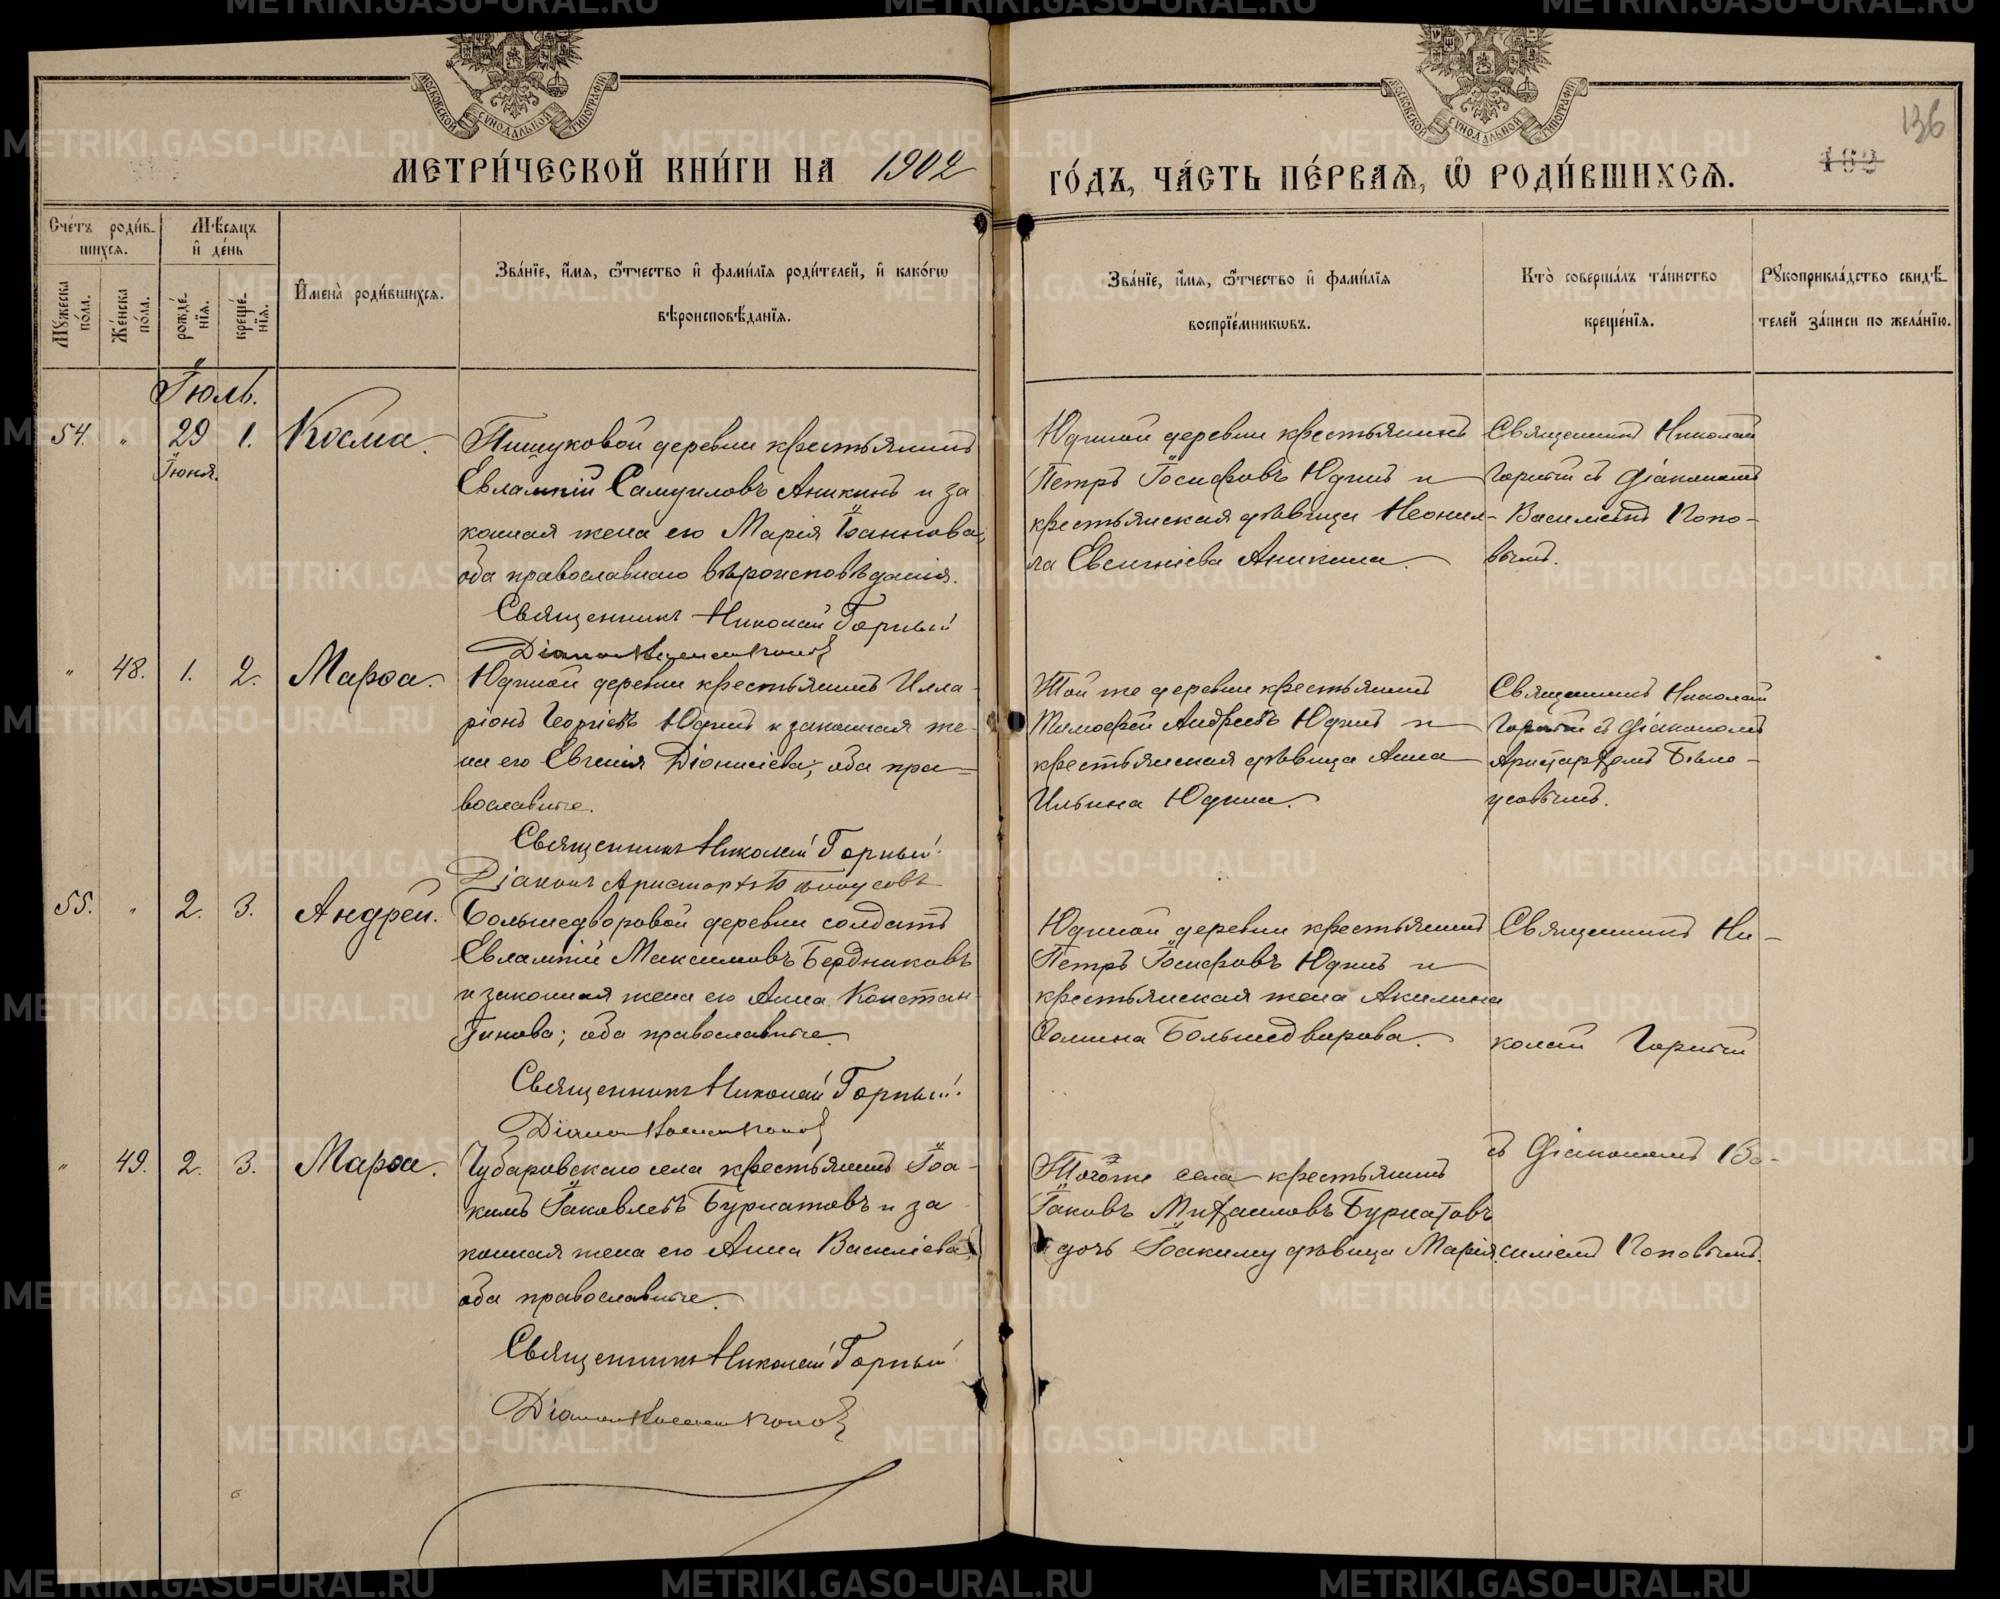 МЕТРИ́ЧЕСКОЙ КНИ́ГИ НА 1902
ГО́ДЪ, ЧА́СТЬ ПЕ́РВАѦ, Ѡ҆ РОДИ́ВШИХСѦ.
136
Сче́тъ роди́в-
шихсѧ.
Мꙋ́жеска по́ла.
Же́нска по́ла.
Мѣ́сѧцъ
и҆ де́нь
рожде́-
нїѧ.
креще́-
нїѧ.
И҆мена̀ роди́вшихсѧ.
Зва́нїе, и҆́мѧ, ѻ҆́тчество и҆ фами́лїѧ роди́телей, и҆ како́гѡ
вѣроисповѣ́данїѧ.
Зва́нїе, и҆́мѧ, ѻ҆́тчество и҆ фами́лїѧ
воспрїе́мникѡвъ.
Кто̀ соверша́лъ та́инство
креще́нїѧ.
Рꙋкоприкла́дство свидѣ́-
телей за́писи по жела́нїю.
Іюль.
54. " 29 1. Косма.
Іюня.
Пищуковой деревни крестьянинъ
Евлампій Самуиловъ Аникинъ и за
конная жена его Марія Іоаннова,
оба православнаго вѣроисповѣданія.
Священникъ Николай Горный
Діаконъ Попов
Юдиной деревни крестьянинъ
Петръ Іосифовъ Юдинъ и
крестьянская дѣвица Неонил-
ла Евгеніева Аникина.
Священникъ Николай
Горный съ діакономъ
Василіемъ Попо-
вымъ.
" 48. 1. 2. Марѳа.
Юдиной деревни крестьянинъ Илла-
ріонъ Георгіевъ Юдинъ и законная же-
на его Евгенія Діонисіева; оба пра-
вославные.
Священникъ Николай Горный.
Діаконъ Аристархъ Бѣлоусовъ
Той же деревни крестьянинъ
Тимофей Андреевъ Юдинъ и
крестьянская дѣвица Анна
Ильина Юдина.
Священникъ Николай
Горный съ діакономъ
Аристархомъ Бѣло-
усовымъ.
55. " 2. 3. Андрей.
Большедворовой деревни солдатъ
Евлампій Максимовъ Бердниковъ
и законная жена его Анна Констан-
тинова; оба православные.
Священникъ Николай Горный.
Діаконъ Попов
Юдиной деревни крестьянинъ
Петръ Іосифовъ Юдинъ и
крестьянская жена Акилина
Фомина Большедворова.
Священникъ Ни-
колай Горный
съ діакономъ Ва-
силіемъ Поповымъ.
" 49. 2. 3. Марѳа.
Чубаровскаго села крестьянинъ Іоа-
кимъ Іаковлевъ Бурнатовъ и за
конная жена его Анна Василіева,
оба православные.
Священникъ Николай Горный
Діаконъ Попов
Того же села крестьянинъ
Іаковъ Михаиловъ Бурнатовъ
и дочь Іоакиму дѣвица Марія.
METRIKI.GASO-URAL.RU